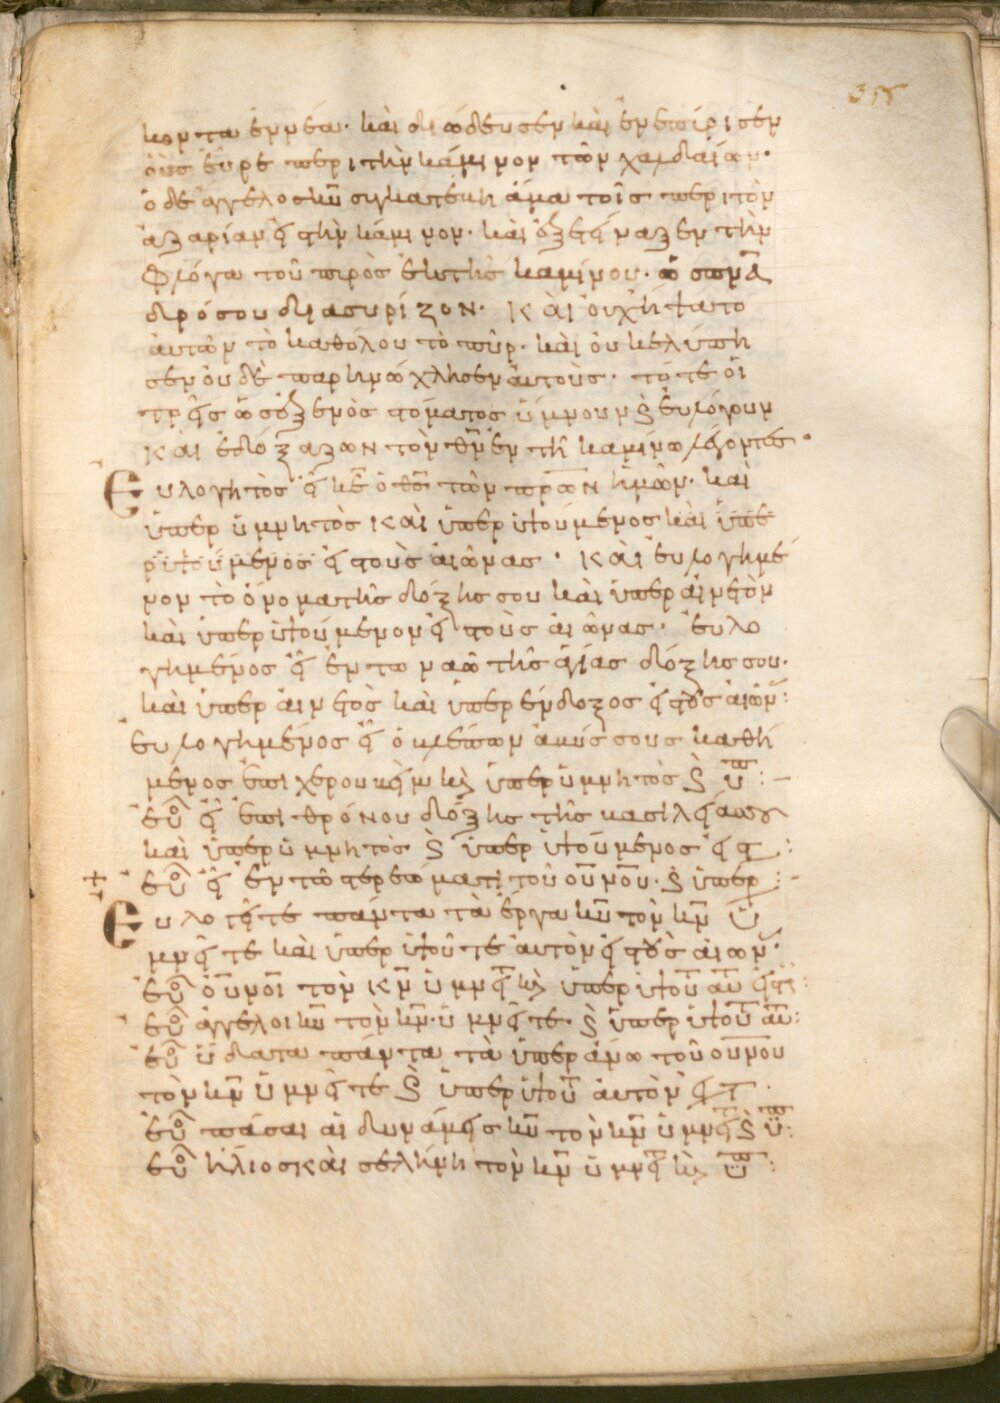 κοντα ἐννέα· καὶ διώδευσεν καὶ ἐνεπύρισεν
οὓς εὗρε περὶ τὴν κάμινον τῶν χαλδαίων·
ὁ δὲ ἄγγελος κῡ συγκατέβη ἅμα τοῖς περὶ τὸν
ἀζαρίαν εἰς τὴν κάμινον· καὶ ἐξετείναξεν τὴν
φλόγα τοῦ πυρὸς ἐκ τῆς καμίνου· ὡς πνᾱ
δρόσου διασυρίζον· καὶ οὐχ ἥψατο
αὐτῶν τὸ καθόλου τὸ πῦρ· καὶ οὐκ ἐλύπη
σεν οὐδὲ παρηνώχλησεν αὐτούς· τότε οἱ
τρεῖς ὡς ἐξ ἑνὸς στόματος ὕμνουν καὶ εὐλόγουν
καὶ ἐδόξαζον τὸν θν̄ ἐν τῇ καμίνω λέγοντες·
Εὐλογητὸς εἶ κε̄ ὁ θς̄ τῶν πρω̄ν ἡμῶν· καὶ
ὑπερύμνητος καὶ ὑπερυψούμενος καὶ ὑπε
ρυψούμενος εἰς τοὺς αἰῶνας· καὶ εὐλογημέ
νον τὸ ὄνομα τῆς δόξης σου καὶ ὑπεραινετὸν
καὶ ὑπερυψούμενον εἰς τοὺς αἰῶνας· εὐλο
γημένος εἶ ἐν τω ναῶ τῆς ἁγίας δόξης σου·
καὶ ὑπεραινετὸς καὶ ὑπερένδοξος εἰς τοὺς αἰῶν:
εὐλογημένος εἶ ὁ βλέπων ἀβύσσους καθή
μενος ἐπὶ χερουβείμ καὶ ὑπερύμνητος καὶ ὑπ:
εὐλ εἶ ἐπὶ θρόνου δόξης τῆς βασιλείας σου
καὶ ὑπερύμνητος καὶ ὑπερυψούμενος εἰς τ:
εὐλ εἶ ἐν τῶ στερεώματι τοῦ οὐνοῦ· καὶ ὑπερ:
Εὐλογεῖτε πάντα τὰ ἔργα κῡ τὸν κν̄ ὑ
μνεῖτε καὶ ὑπερυψοῦτε αὐτὸν εἰς τοὺς αἰων·
εὐλ οὐνοὶ τὸν κν̄ ὑμνεῖ καὶ ὑπερυψοῦ αὐ εἰς τ:
εὐλ ἄγγελοι κῡ τὸν κν̄· ὑμνεῖτε· καὶ ὑπερυψοῦ αὐ:
εὐλ ὕδατα πάντα τὰ ὑπεράνω τοῦ οὐνοῦ
τὸν κν̄ ὑμνεῖτε καὶ ὑπερυψοῦ αὐτὸν εἰς τ
εὐλ πᾶσαι αἱ δυνάμεις κῡ τὸν κν̄ ὑμνεῖ καὶ ὑπ:
εὐλ ἥλιος καὶ σελήνη τὸν κν̄ ὑμνεῖ καὶ ὑπ: